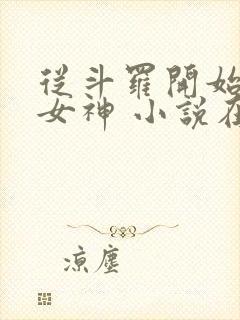 從斗羅開始
女神 小說在
涼塵